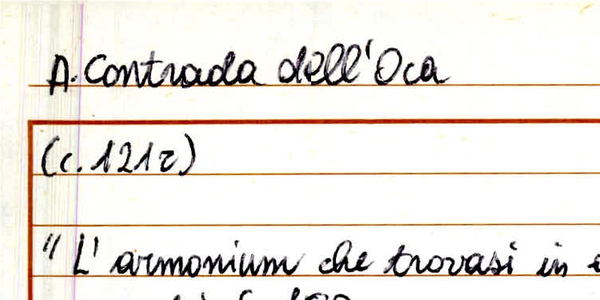 A. Contrada dell'Oca
(c. 121r)
"L'armonium che trovasi in